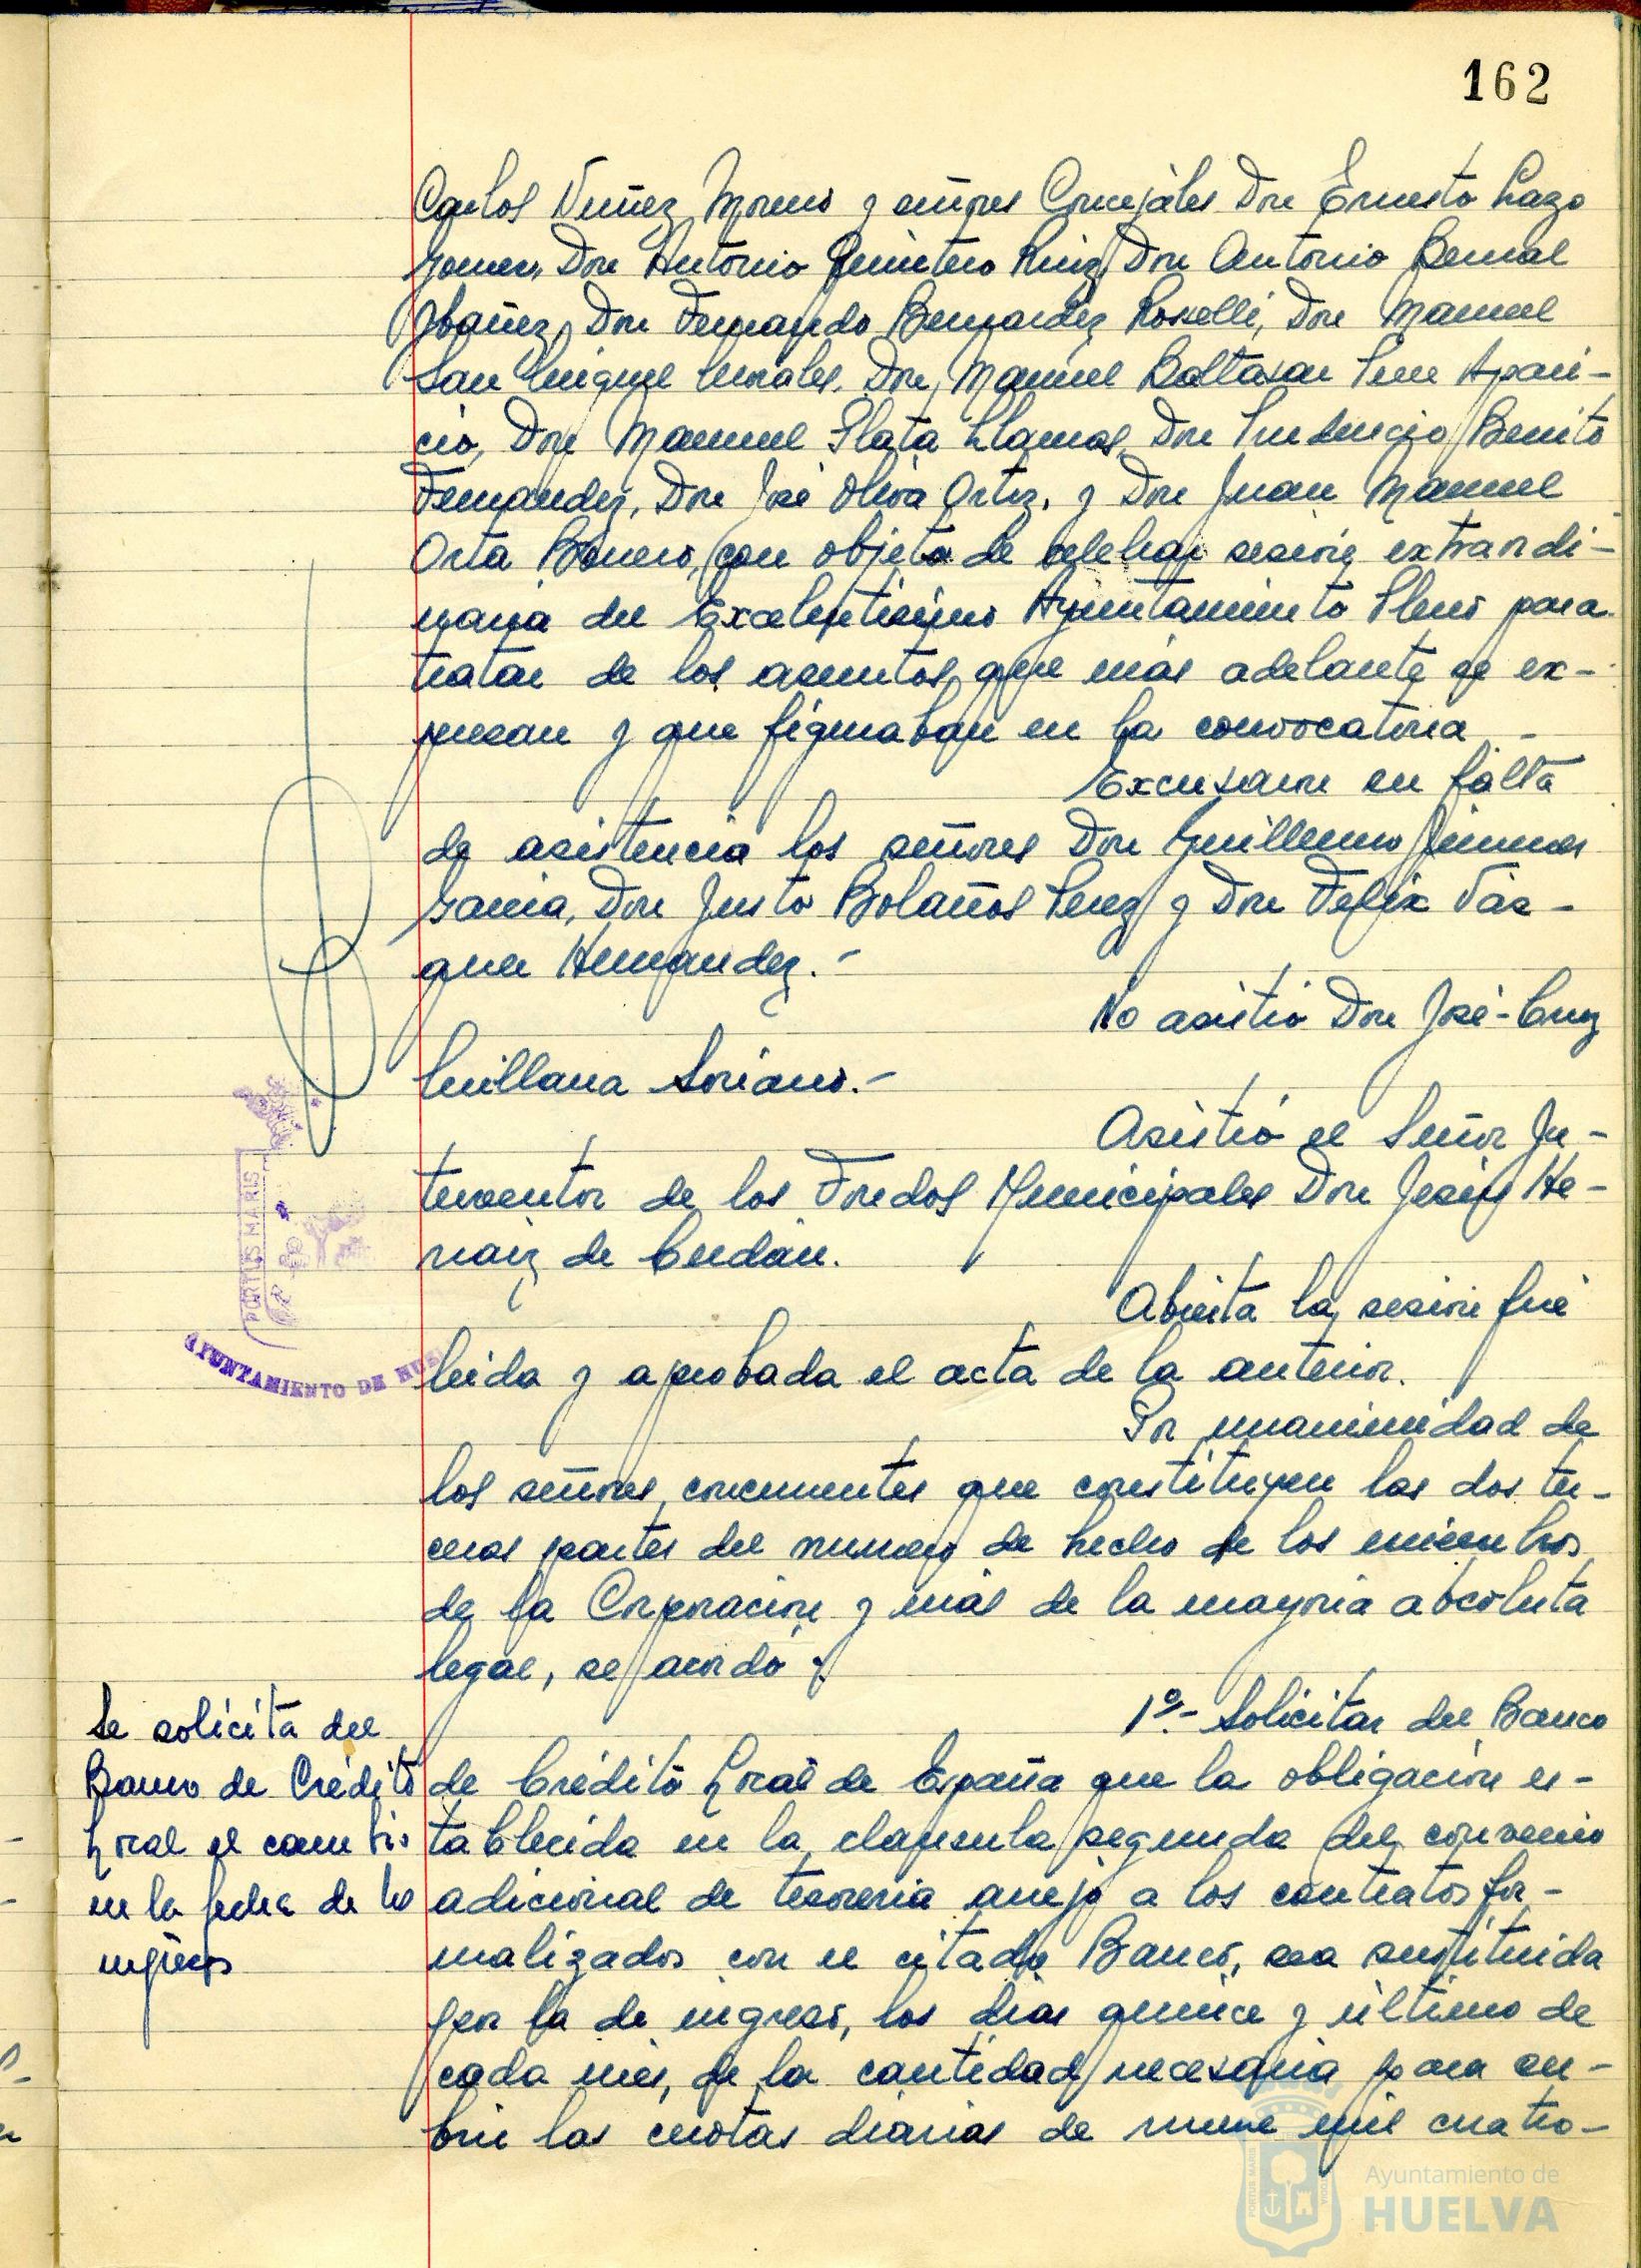 162
Carlos Nuñez Moreno y señores Concejales Don Ernesto Lazo
Gomez, Don Antonio Quintero Ruiz, Don Antonio Bernal
Ibañez, Don Fernando Bermudez Rosselli, Don Manuel
San Miguel Morales, Don Manuel Baltasar Pere Apari-
cio, Don Manuel Plata Llamas, Don Prudencio Benito
Fernandez, Don José Oliva Ortiz, y Don Juan Manuel
Orta Borrero, con objeto de celebrar sesión extraordi-
naria del Excelentisimo Ayuntamiento Pleno para
tratar de los asuntos que más adelante se ex-
presan y que figuraban en la convocatoria -
Excusaron su falta
de asistencia los señores Don Guillermo Jimenez
Garcia, Don Justo Bolaños Perez y Don Felix Vaz-
quez Hernandez.-
No asistió Don José-Cruz
Quillana Soriano.-
Asistió el Señor In-
terventor de los Fondos Municipales Don Jesús He-
rraiz de Cerdán.
Abierta la sesión fué
leida y aprobada el acta de la anterior.
Por unanimidad de
los señores concurrentes que constituyen las dos ter-
ceras partes del numero de hecho de los miembros
de la Corporación y más de la mayoria absoluta
legal, se acordó:
1º.- Solicitar del Banco
de Crédito Local de España que la obligación es-
tablecida en la clausula segunda del convenio
adicional de tesoreria anejo a los contratos for-
malizados con el citado Banco, sea sustituida
por la de ingreso, los dias quince y último de
cada mes, de la cantidad necesaria para cu-
brir las cuotas diarias de nueve mil cuatro-
Se solicita del
Banco de Crédito
Local el cambio
en la fecha de los
ingresos
PORTUS MARIS
AYUNTAMIENTO DE HUE
Ayuntamiento de
HUELVA